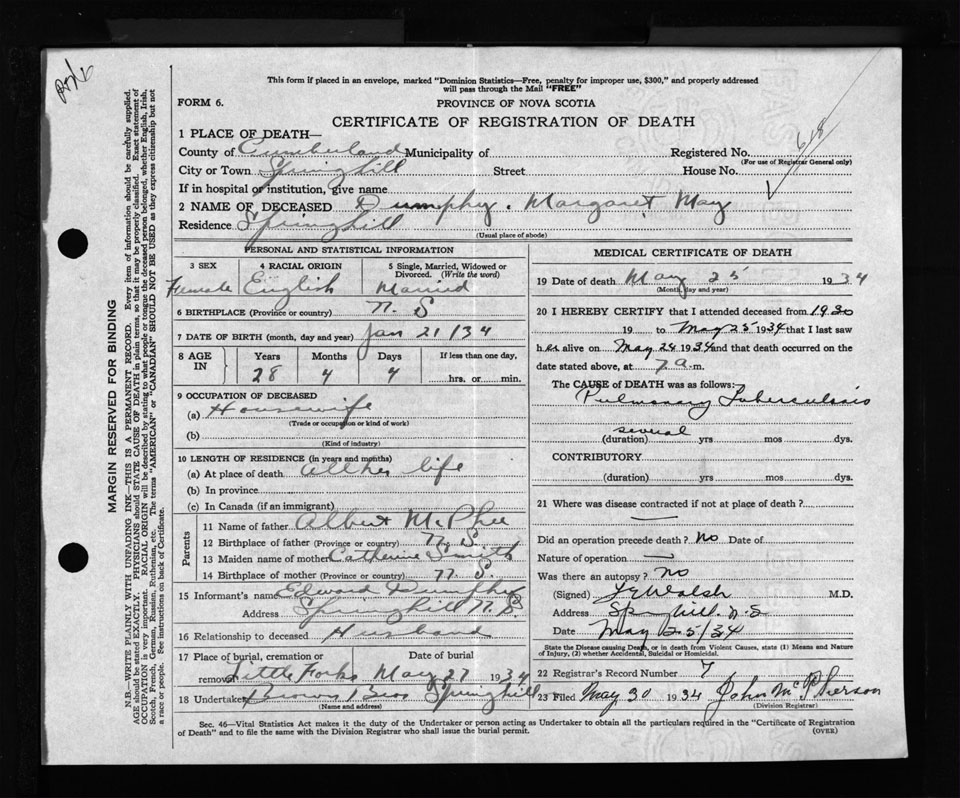 This form if placed in an envelope, marked "Dominion Statistics—Free, penalty for improper use, $300," and properly addressed
will pass through the Mail "FREE"
FORM 6.
PROVINCE OF NOVA SCOTIA
CERTIFICATE OF REGISTRATION OF DEATH
1 PLACE OF DEATH—
County of Cumberland Municipality of Registered No.
(For use of Registrar General only)
City or Town Springhill Street House No.
If in hospital or institution, give name
2 NAME OF DECEASED Dumphy. Margaret May
Residence Springhill
(Usual place of abode)
PERSONAL AND STATISTICAL INFORMATION
3 SEX 4 RACIAL ORIGIN 5 Single, Married, Widowed or
Divorced. (Write the word)
Female English Married
6 BIRTHPLACE (Province or country) N. S
7 DATE OF BIRTH (month, day and year) Jan 21/34
8 AGE IN Years Months Days If less than one day,
28 4 4 hrs. or min.
9 OCCUPATION OF DECEASED
(a) Housewife
(Trade or occupation or kind of work)
(b)
(Kind of industry)
10 LENGTH OF RESIDENCE (in years and months)
(a) At place of death all her life
(b) In province
(c) In Canada (if an immigrant)
Parents
11 Name of father Albert McPhee
12 Birthplace of father (Province or country) N. S.
13 Maiden name of mother Catherine Smith
14 Birthplace of mother (Province or country) N. S.
15 Informant's name Edward Dumphy
Address Springhill N. S
16 Relationship to deceased Husband
17 Place of burial, cremation or Date of burial
removal Little Forks May 27 1934
18 Undertaker Brown Bros Springhill
(Name and address)
MEDICAL CERTIFICATE OF DEATH
19 Date of death May 25 1934
(Month, day and year)
20 I HEREBY CERTIFY that I attended deceased from 1930
19 to May 25 1934 that I last saw
her alive on May 24 1934 and that death occurred on the
date stated above, at 7 a. m.
The CAUSE of DEATH was as follows:
Pulmonary Tuberculosis
several
(duration) yrs mos dys.
CONTRIBUTORY
(duration) yrs mos dys.
21 Where was disease contracted if not at place of death?
Did an operation precede death? no Date of
Nature of operation —
Was there an autopsy? no
(Signed) Walsh M.D.
Address Springhill. N. S
Date May 25/34
State the Disease causing Death, or in death from Violent Causes, state (1) Means and
Nature of Injury, (2) whether Accidental, Suicidal or Homicidal.
22 Registrar's Record Number 7
23 Filed May 30 1934 John McPherson
(Division Registrar)
Sec. 46—Vital Statistics Act makes it the duty of the Undertaker or person acting as Undertaker to obtain all the particulars required in the "Certificate of Registration
of Death" and to file the same with the Division Registrar who shall issue the burial permit.
(OVER)
MARGIN RESERVED FOR BINDING
N.B.—WRITE PLAINLY WITH UNFADING INK—THIS IS A PERMANENT RECORD. Every item of information should be carefully supplied.
AGE should be stated EXACTLY. PHYSICIANS should STATE CAUSE OF DEATH in plain terms, so that it may be properly classified. Exact statement of
OCCUPATION is very important. RACIAL ORIGIN will be described by stating to what people or tongue the deceased person belonged, whether English, Irish,
Scotch, French, German, Russian, Ruthenian, etc. The terms "AMERICAN" or "CANADIAN" SHOULD NOT BE USED as they express citizenship but not
a race or people. See instructions on back of Certificate.